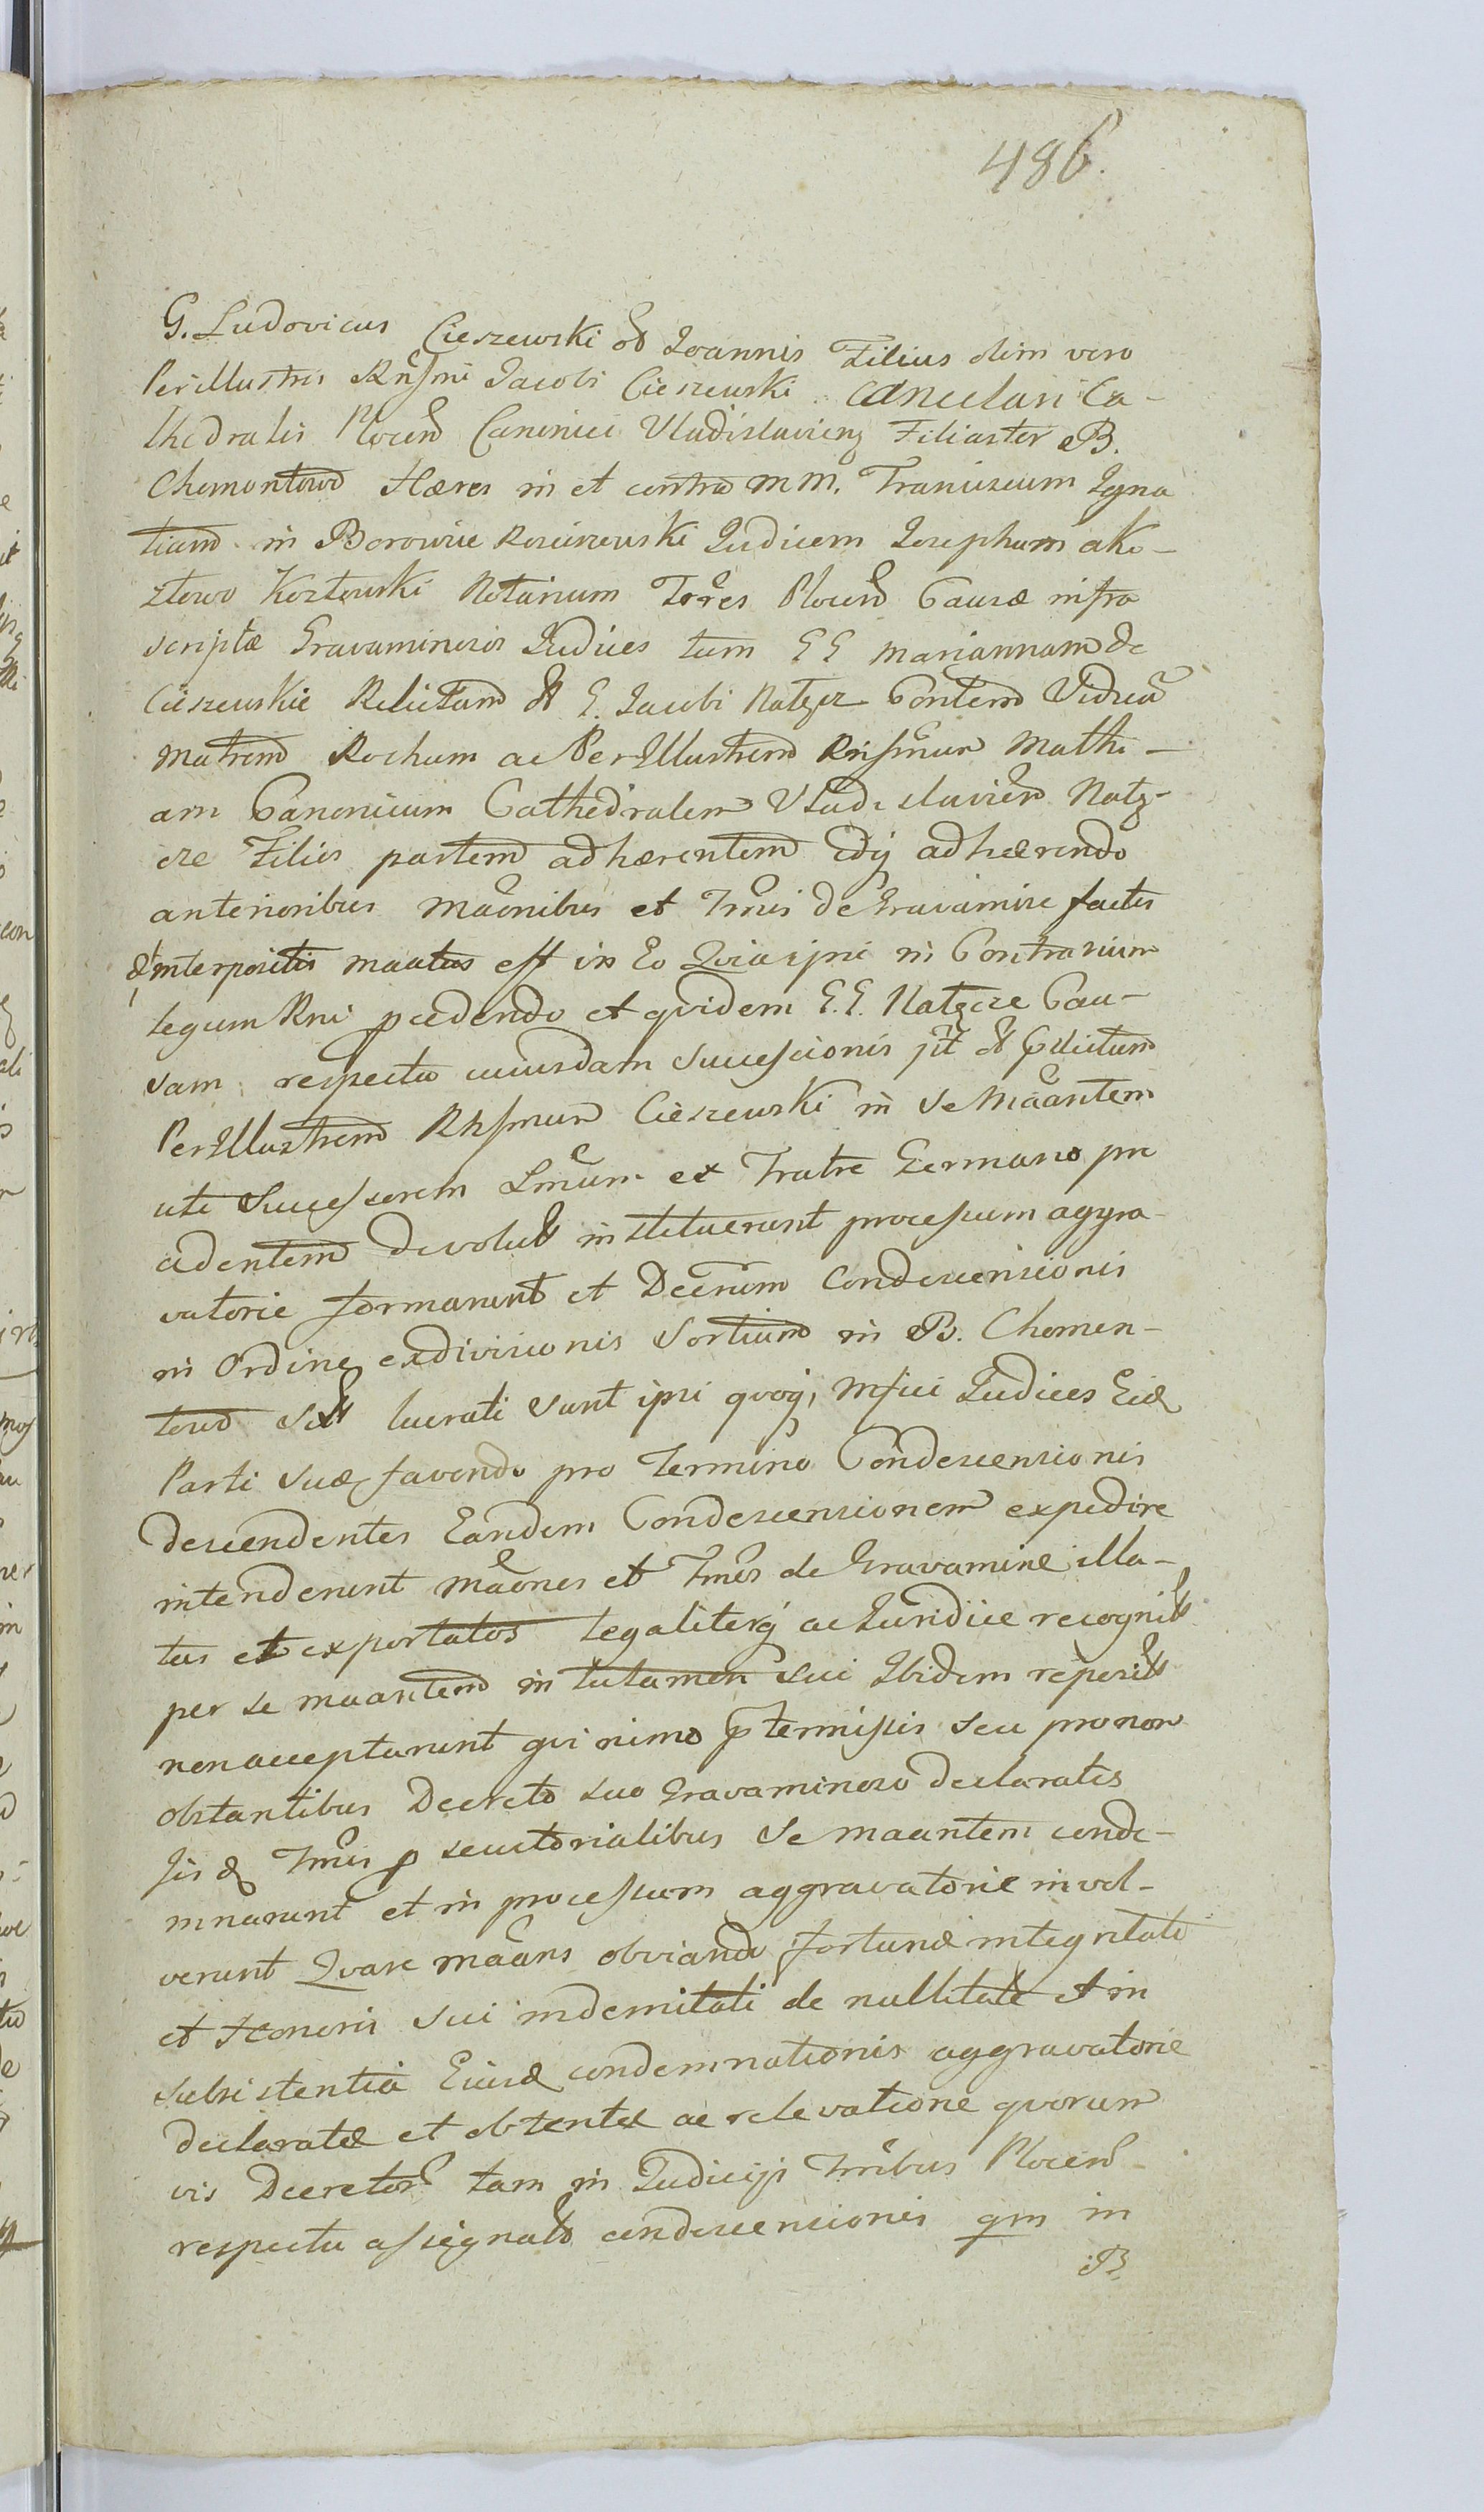 486.
G. Ludovicus Cieszewski od Joannis Filius olim vero
Perillustris Rñsmi Jacobi Cieszewski Cancelari Ca-
thedralis Plocen Canonici Vladislavien Filiaster B.
Chomontowo Hæres in et contra MM. Franciscum Igna
tium in Borowice Rosciszewski Judicem Josephum a Ko-
złowo Kozłowski Notarium Trrēs Plocen Causæ infra
scriptæ Gravaminosos Judices tum GG Mariannam de
Cieszewskie Relictam G. Jacobi Natęcz Contem Viduā
Matrem Rochum ac Perillustrem Rñsmum Mathi-
am Canonicum Cathedralem Vladislavien Natę-
cze Filios partem adhærentem Idq adhærendo
anterioribus Maōnibus et Tmis de Gravamine factis
& interpositis maatus est in Eo Quia ipsi in Contrarium
legum Rni pcedendo et qvidem G.G. Natęcze Cau-
sam respectu cuiusdam Successionis pt
PerIllustrem Rñsmum Cieszewski in se Māantem
uti Successorem Lmum ex Fratre Germano præ
adentem devolut instituerunt processum aggra-
vatorie formarunt et Decrum Condescensionis
in Ordine exdivisionis Sortium in B. Chomen-
towo lucrati sunt ipsi qvoq, Mfici Judices Eid
Parti suæ favendo pro Termino Condescensionis
descendentes Eandem Condescensionem expedire
intenderunt Māones et Tmos de Gravamine illa-
tas et exportatos legaliterq ac Juridice recognit
per se maantem in tutamen sui Ibidem reposit
non acceptarunt qvinimo ptermissis seu pro non
obstantibus Decreto suo Gravaminoso declaratis
Jisd Tmis p secutorialibus se maantem conde-
mnarunt et in processum aggravatorie invol-
verunt Qvare māans obviando fortunæ integritati
et Honoris sui indemnitati de nullitate et in
subsistentia Eiusd condemnationis aggravatorie
declaratæ et obtentæ ac relevatione qvorum
vis Decretor tam in Judicijs Trribus Plocen
respectu assignat condescensionis qm in
B.